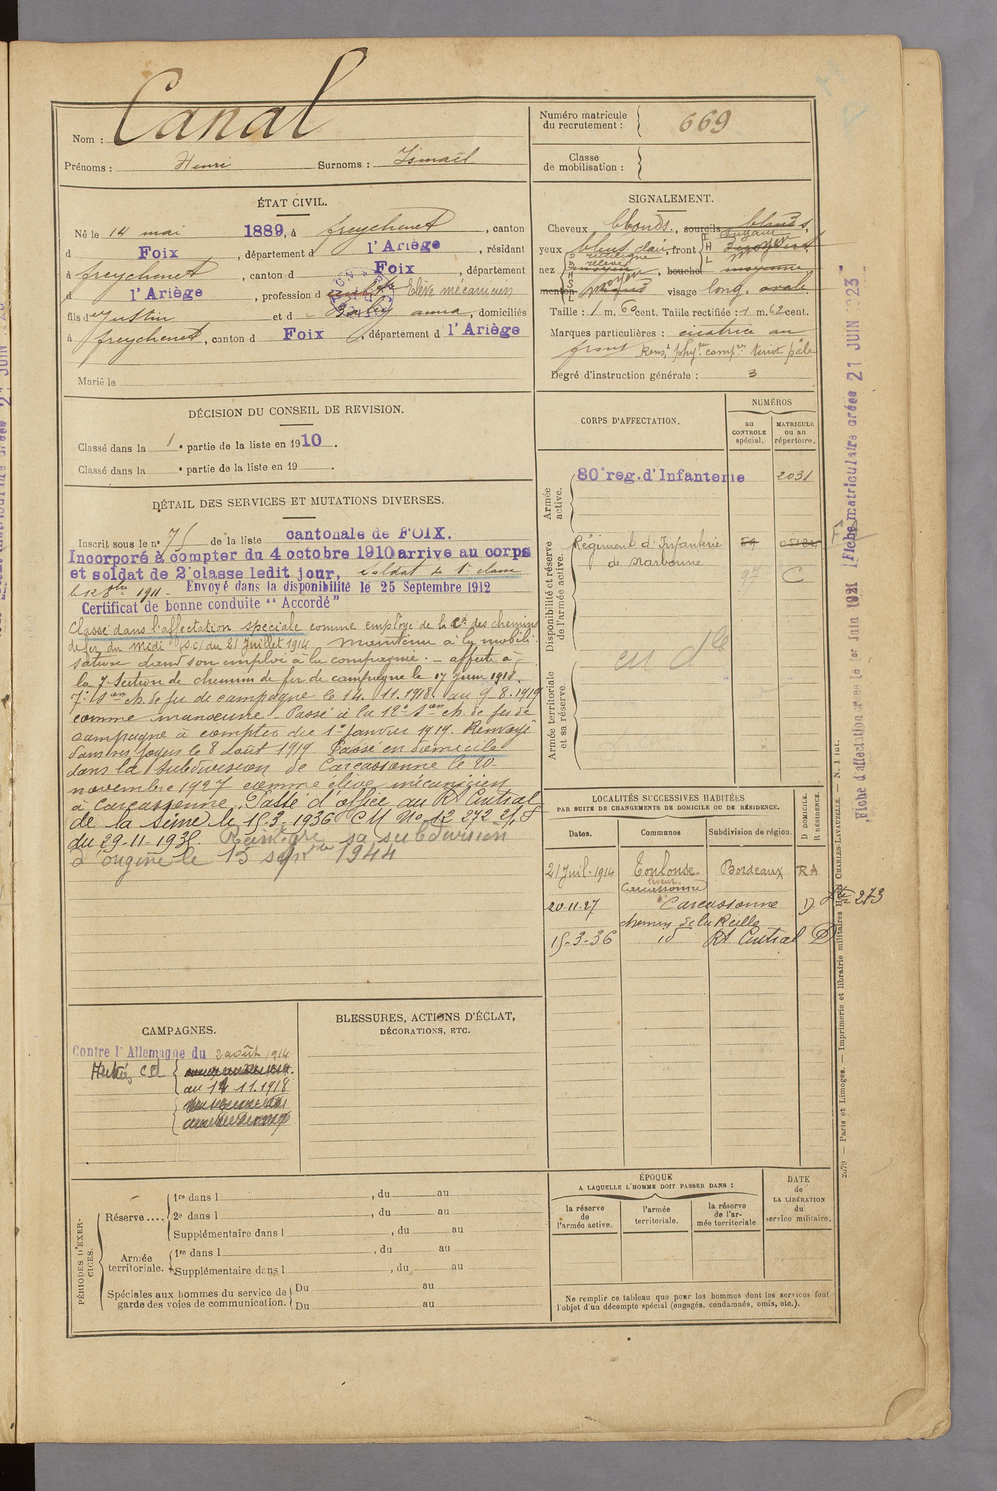 Nom : Canal
Prénoms : Henri Surnoms : Ismaël
Numéro matricule du recrutement : 669
Classe de mobilisation :
ÉTAT CIVIL.
Né le 14 mai 1889, à freychenet, canton
d Foix, département d l'Ariège, résidant
à freychenet, canton d Foix, département
d l'Ariège, profession d Elève mécanicien
fils d Justin et d anna, domiciliés
à freychenet, canton d Foix, département d l'Ariège
Marié le
SIGNALEMENT.
Cheveux blonds, sourcils blonds,
yeux bleus clair, front
nez rectiligne releve moyen, bouche moyenne
menton visage long. ovale.
Taille : 1 m. 60 cent. Taille rectifiée : 1 m. 62 cent.
Marques particulières : cicatrice au
front Rens. phy. comp. teint pâle
Degré d'instruction générale : 3
DÉCISION DU CONSEIL DE REVISION.
Classé dans la 1e partie de la liste en 1910.
Classé dans la e partie de la liste en 19
DÉTAIL DES SERVICES ET MUTATIONS DIVERSES.
Inscrit sous le n° 75 de la liste cantonale de FOIX.
Incorporé à compter du 4 octobre 1910 arrive au corps
et soldat de 2e classe ledit jour, soldat de 1e classe
le 1911. Envoyé dans la disponibilité le 25 Septembre 1912
Certificat de bonne conduite "Accordé"
Classé dans l'affectation spéciale comme employé de la Cie des chemins
de fer du Midi (S.C) du 21 Juillet 1914 Maintenu à la mobili-
sation dans son emploi à la compagnie. - affecté à
la 7e Section de chemin de fer de campagne le 17 Juin 1918.
7e Son ch. de fer de campagne le 14.11.1918 au 9.8.1919
comme manœuvre. Passé à la 12e Son ch. de fer de
campagne à compter du 1er Janvier 1919. Renvoyé
dans ses foyers le 8 août 1919 Passé en domicile
dans la Subdivision de Carcassonne le 20
novembre 1927 comme élève mécanicien
à Carcassonne. Passé d'office au Rt Central
de la Seine le 15.3.1936 CM No 12 272 2/S
du 29-11-1935. Réintègre sa subdivision
d'origine le 15 septbre 1944
CORPS D'AFFECTATION.
NUMÉROS
au CONTROLE spécial.
MATRICULE ou au répertoire.
Armée active.
80e reg. d'Infanterie 2031
Disponibilité et réserve de l'armée active.
Régiment d'Infanterie
de Narbonne
97 C
Armée territoriale et sa réserve.
en dle
LOCALITÉS SUCCESSIVES HABITÉES
PAR SUITE DE CHANGEMENTS DE DOMICILE OU DE RÉSIDENCE.
Dates. Communes Subdivision de région. D DOMICILE. R RÉSIDENCE.
21 Juil. 1914 Toulouse Bordeaux RA
Carcassonne
20.11.27 Carcassonne D
chemin de la Reille
15-3-36 id Rt Central D
273
CAMPAGNES.
Contre l'Allemagne du 2 août 1914
au 14 11.1918
BLESSURES, ACTIONS D'ÉCLAT,
DÉCORATIONS, ETC.
PÉRIODES D'EXERCICES.
Réserve....
1re dans l , du au
2e dans l , du au
Supplémentaire dans l , du au
Armée territoriale.
1re dans l , du au
Supplémentaire dans l , du au
Spéciales aux hommes du service de garde des voies de communication.
Du au
Du au
ÉPOQUE
A LAQUELLE L'HOMME DOIT PASSER DANS :
la réserve de l'armée active.
l'armée territoriale.
la réserve de l'armée territoriale
DATE de LA LIBÉRATION du service militaire.
Ne remplir ce tableau que pour les hommes dont les services font
l'objet d'un décompte spécial (engagés, condamnés, omis, etc.).
Fiche matriculaire créée 21 JUIN 1923
Fiche d'affectation créée le 1er Juin 1921
2079 — Paris et Limoges. — Imprimerie et librairie militaires Henri CHARLES-LAVAUZELLE. — N. 1 int.